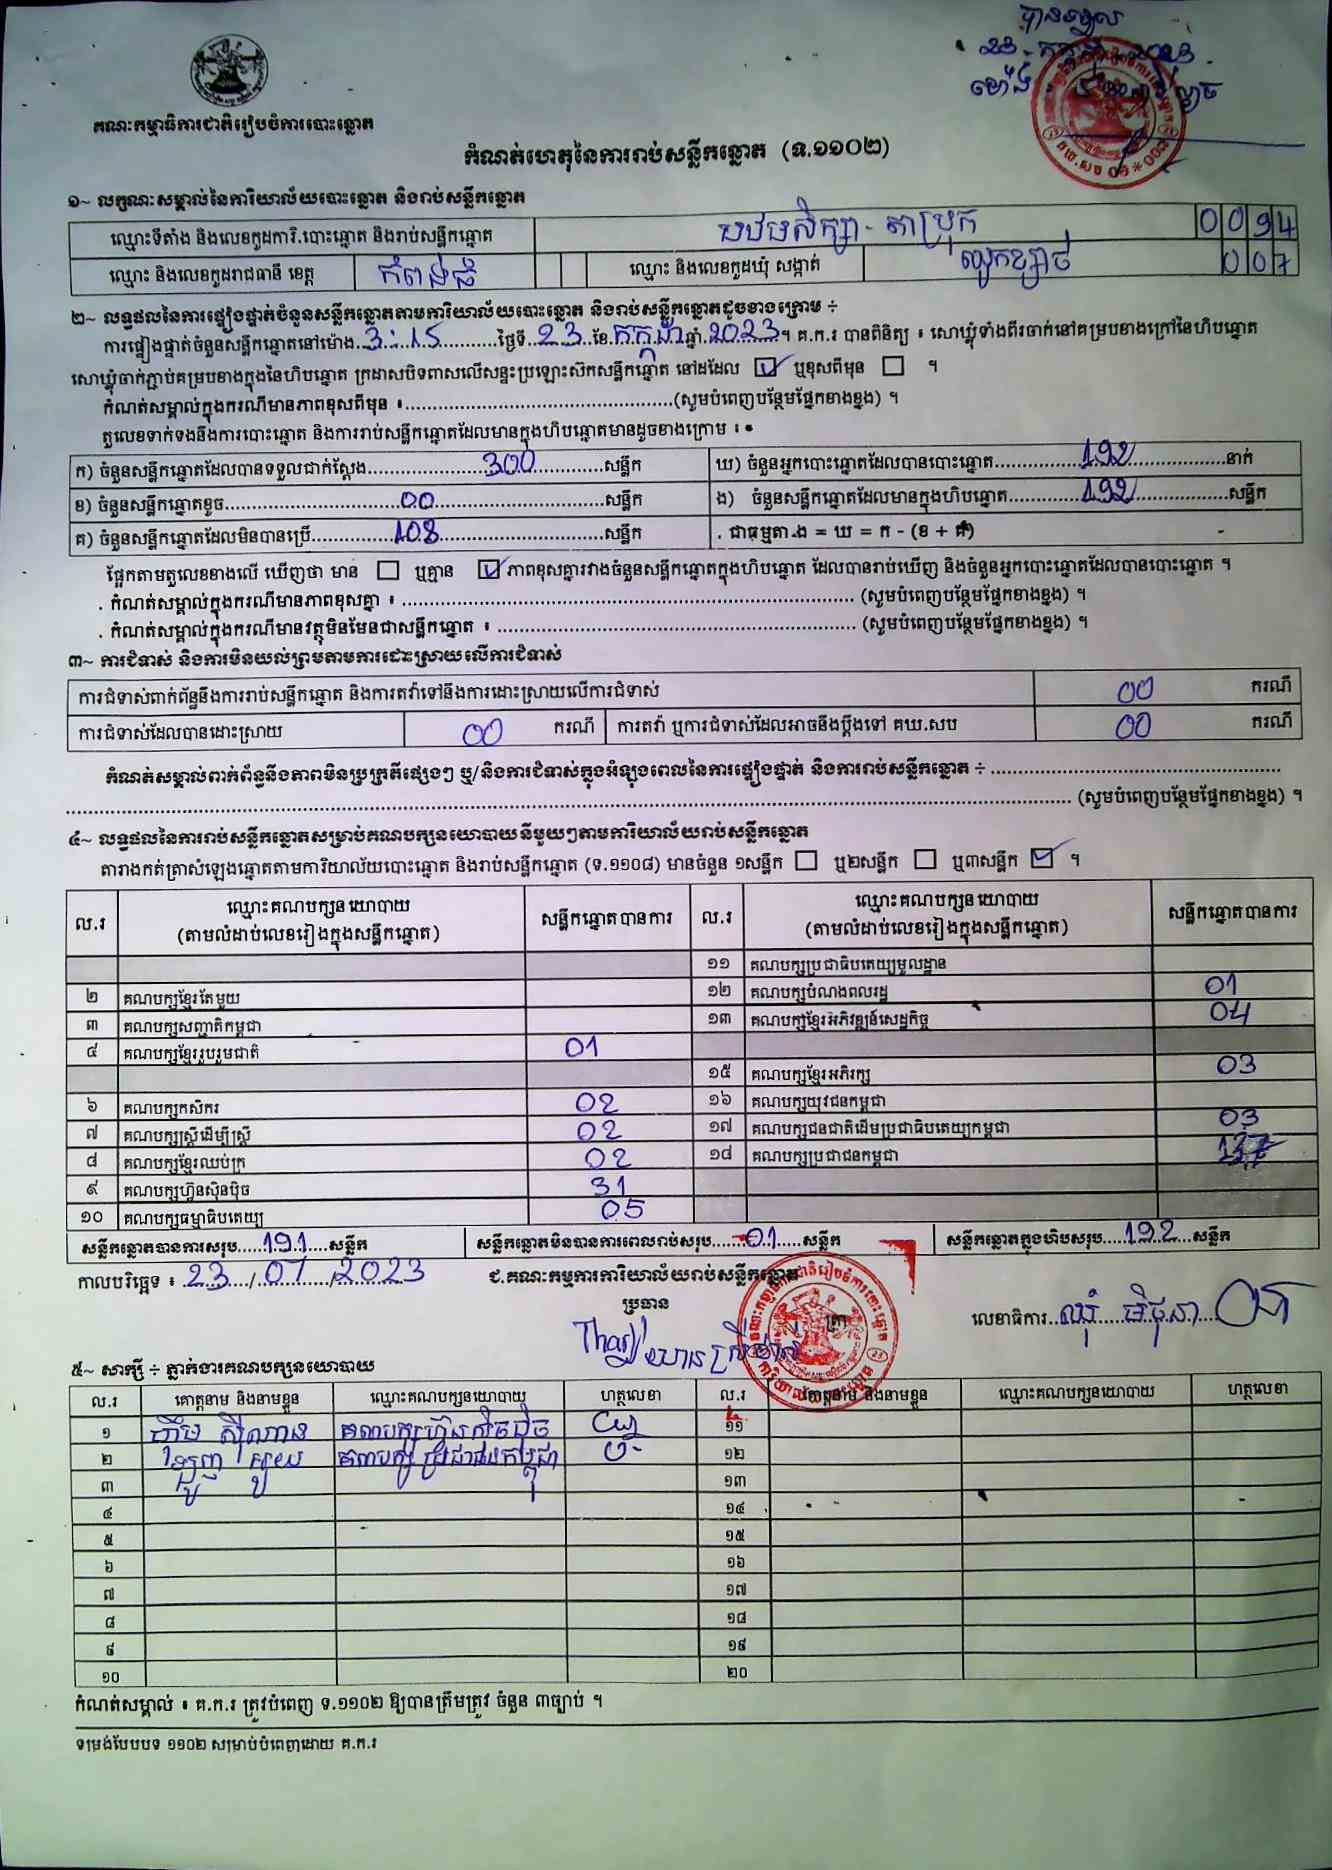 បានទទួល
23 កក្កដា 2023
ម៉ោង
គណៈកម្មាធិការជាតិរៀបចំការបោះឆ្នោត
កំណត់ហេតុនៃការរាប់សន្លឹកឆ្នោត (ទ.១១០២)
១~ លក្ខណៈសម្គាល់នៃការិយាល័យបោះឆ្នោត និងរាប់សន្លឹកឆ្នោត
ឈ្មោះទីតាំង និងលេខកូដការិ.បោះឆ្នោត និងរាប់សន្លឹកឆ្នោត បឋមសិក្សា - តាប្រុក 0094
ឈ្មោះ និងលេខកូដរាជធានី ខេត្ត កំពង់ធំ ឈ្មោះ និងលេខកូដឃុំ សង្កាត់ ល្វូកខ្សាច់ 007
២~ លទ្ធផលនៃការផ្ទៀងផ្ទាត់ចំនួនសន្លឹកឆ្នោតតាមការិយាល័យបោះឆ្នោត និងរាប់សន្លឹកឆ្នោតដូចខាងក្រោម ÷
ការផ្ទៀងផ្ទាត់ចំនួនសន្លឹកឆ្នោតនៅម៉ោង 3:15 ថ្ងៃទី 23 ខែ កក្កដា ឆ្នាំ 2023។ គ.ក.រ បានពិនិត្យ ៖ សោឃ្លុំទាំងពីរចាក់នៅគម្របខាងក្រៅនៃហិបឆ្នោត
សោឃ្លុំចាក់ភ្ជាប់គម្របខាងក្នុងនៃហិបឆ្នោត ក្រដាសបិទពាសលើសន្ទះប្រឡោះស៊កសន្លឹកឆ្នោត នៅដដែល ☑ ឬខុសពីមុន ☐ ។
កំណត់សម្គាល់ក្នុងករណីមានភាពខុសពីមុន ៖..........(សូមបំពេញបន្ថែមផ្នែកខាងខ្នង) ។
តួលេខទាក់ទងនឹងការបោះឆ្នោត និងការរាប់សន្លឹកឆ្នោតដែលមានក្នុងហិបឆ្នោតមានដូចខាងក្រោម ៖
ក) ចំនួនសន្លឹកឆ្នោតដែលបានទទួលជាក់ស្តែង 300 សន្លឹក ឃ) ចំនួនអ្នកបោះឆ្នោតដែលបានបោះឆ្នោត 192 នាក់
ខ) ចំនួនសន្លឹកឆ្នោតខូច 00 សន្លឹក ង) ចំនួនសន្លឹកឆ្នោតដែលមានក្នុងហិបឆ្នោត 192 សន្លឹក
គ) ចំនួនសន្លឹកឆ្នោតដែលមិនបានប្រើ 108 សន្លឹក . ជាធម្មតា ង = ឃ = ក - (ខ + គ)
ផ្អែកតាមតួលេខខាងលើ ឃើញថា មាន ☐ ឬគ្មាន ☑ ភាពខុសគ្នារវាងចំនួនសន្លឹកឆ្នោតក្នុងហិបឆ្នោត ដែលបានរាប់ឃើញ និងចំនួនអ្នកបោះឆ្នោតដែលបានបោះឆ្នោត ។
. កំណត់សម្គាល់ក្នុងករណីមានភាពខុសគ្នា ៖ .......... (សូមបំពេញបន្ថែមផ្នែកខាងខ្នង) ។
. កំណត់សម្គាល់ក្នុងករណីមានវត្ថុមិនមែនជាសន្លឹកឆ្នោត ៖ .......... (សូមបំពេញបន្ថែមផ្នែកខាងខ្នង) ។
៣~ ការជំទាស់ និងការមិនយល់ព្រមតាមការដោះស្រាយលើការជំទាស់
ការជំទាស់ពាក់ព័ន្ធនឹងការរាប់សន្លឹកឆ្នោត និងការតវ៉ាទៅនឹងការដោះស្រាយលើការជំទាស់ 00 ករណី
ការជំទាស់ដែលបានដោះស្រាយ 00 ករណី ការតវ៉ា ឬការជំទាស់ដែលអាចនឹងប្តឹងទៅ គឃ.សប 00 ករណី
កំណត់សម្គាល់ពាក់ព័ន្ធនឹងភាពមិនប្រក្រតីផ្សេងៗ ឬ/និងការជំទាស់ក្នុងអំឡុងពេលនៃការផ្ទៀងផ្ទាត់ និងការរាប់សន្លឹកឆ្នោត ÷ ..........
.......... (សូមបំពេញបន្ថែមផ្នែកខាងខ្នង) ។
៤~ លទ្ធផលនៃការរាប់សន្លឹកឆ្នោតសម្រាប់គណបក្សនយោបាយនីមួយៗតាមការិយាល័យរាប់សន្លឹកឆ្នោត
តារាងកត់ត្រាសំឡេងឆ្នោតតាមការិយាល័យបោះឆ្នោត និងរាប់សន្លឹកឆ្នោត (ទ.១១០៨) មានចំនួន ១សន្លឹក ☐ ឬ២សន្លឹក ☐ ឬ៣សន្លឹក ☑ ។
ល.រ ឈ្មោះគណបក្សនយោបាយ (តាមលំដាប់លេខរៀងក្នុងសន្លឹកឆ្នោត) សន្លឹកឆ្នោតបានការ ល.រ ឈ្មោះគណបក្សនយោបាយ (តាមលំដាប់លេខរៀងក្នុងសន្លឹកឆ្នោត) សន្លឹកឆ្នោតបានការ
១១ គណបក្សប្រជាធិបតេយ្យមូលដ្ឋាន
២ គណបក្សខ្មែរតែមួយ ១២ គណបក្សបំណងពលរដ្ឋ 01
៣ គណបក្សសញ្ជាតិកម្ពុជា ១៣ គណបក្សខ្មែរអភិវឌ្ឍន៍សេដ្ឋកិច្ច 04
៤ គណបក្សខ្មែររួបរួមជាតិ 01
១៥ គណបក្សខ្មែរអភិរក្ស 03
៦ គណបក្សកសិករ 02 ១៦ គណបក្សយុវជនកម្ពុជា
៧ គណបក្សស្ត្រីដើម្បីស្ត្រី 02 ១៧ គណបក្សជនជាតិដើមប្រជាធិបតេយ្យកម្ពុជា 03
៨ គណបក្សខ្មែរឈប់ក្រ 02 ១៨ គណបក្សប្រជាជនកម្ពុជា 137
៩ គណបក្សហ៊្វុនស៊ិនប៉ិច 31
១០ គណបក្សធម្មាធិបតេយ្យ 05
សន្លឹកឆ្នោតបានការសរុប 191 សន្លឹក សន្លឹកឆ្នោតមិនបានការពេលរាប់សរុប 01 សន្លឹក សន្លឹកឆ្នោតក្នុងហិបសរុប 192 សន្លឹក
កាលបរិច្ឆេទ ៖ 23/07/2023 ជ.គណៈកម្មការការិយាល័យរាប់សន្លឹកឆ្នោត
ប្រធាន ត្រា លេខាធិការ ឈុំ មិថុនា
៥~ សាក្សី ÷ ភ្នាក់ងារគណបក្សនយោបាយ
ល.រ គោត្តនាម និងនាមខ្លួន ឈ្មោះគណបក្សនយោបាយ ហត្ថលេខា ល.រ គោត្តនាម និងនាមខ្លួន ឈ្មោះគណបក្សនយោបាយ ហត្ថលេខា
១ គណបក្សហ៊្វុនស៊ិនប៉ិច ១១
២ គណបក្ស ប្រជាជនកម្ពុជា ១២
៣ ១៣
៤ ១៤
៥ ១៥
៦ ១៦
៧ ១៧
៨ ១៨
៩ ១៩
១០ ២០
កំណត់សម្គាល់ ៖ គ.ក.រ ត្រូវបំពេញ ទ.១១០២ ឱ្យបានត្រឹមត្រូវ ចំនួន ៣ច្បាប់ ។
ទម្រង់បែបបទ ១១០២ សម្រាប់បំពេញដោយ គ.ក.រ